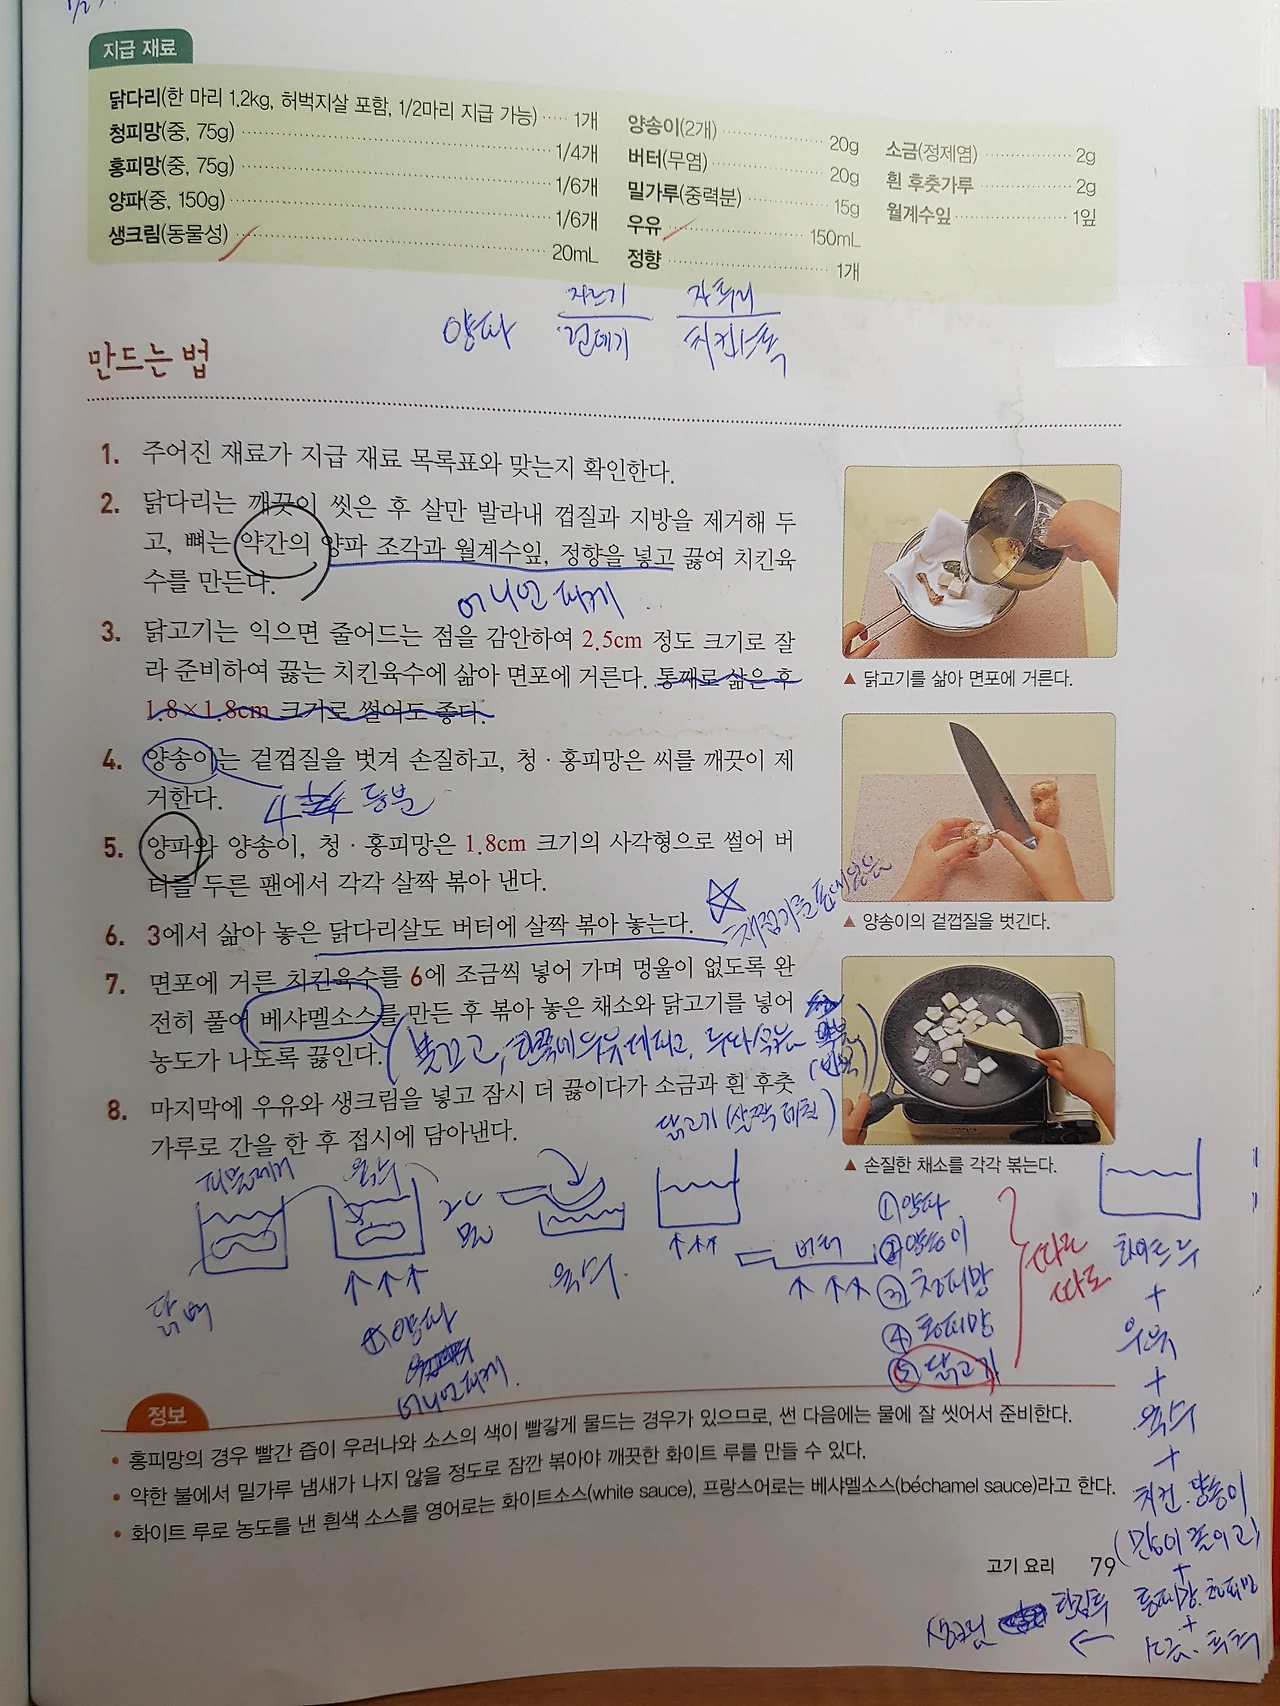 지급 재료
닭다리(한 마리 1.2kg, 허벅지살 포함, 1/2마리 지급 가능) ····· 1개
청피망(중, 75g) ····· 1/4개
홍피망(중, 75g) ····· 1/6개
양파(중, 150g) ····· 1/6개
생크림(동물성) ····· 20mL
양송이(2개) ····· 20g
버터(무염) ····· 20g
밀가루(중력분) ····· 15g
우유 ····· 150mL
정향 ····· 1개
소금(정제염) ····· 2g
흰 후춧가루 ····· 2g
월계수잎 ····· 1잎
양파 자르기 자투리
건데기 치킨스톡
만드는 법
1. 주어진 재료가 지급 재료 목록표와 맞는지 확인한다.
2. 닭다리는 깨끗이 씻은 후 살만 발라내 껍질과 지방을 제거해 두
고, 뼈는 약간의 양파 조각과 월계수잎, 정향을 넣고 끓여 치킨육
수를 만든다.
어니언 피케
3. 닭고기는 익으면 줄어드는 점을 감안하여 2.5cm 정도 크기로 잘
라 준비하여 끓는 치킨육수에 삶아 면포에 거른다. 통째로 삶은 후
1.8×1.8cm 크기로 썰어도 좋다.
4. 양송이는 겉껍질을 벗겨 손질하고, 청·홍피망은 씨를 깨끗이 제
거한다.
4 등분
5. 양파와 양송이, 청·홍피망은 1.8cm 크기의 사각형으로 썰어 버
터를 두른 팬에서 각각 살짝 볶아 낸다.
6. 3에서 삶아 놓은 닭다리살도 버터에 살짝 볶아 놓는다.
7. 면포에 거른 치킨육수를 6에 조금씩 넣어 가며 멍울이 없도록 완
전히 풀어 베샤멜소스를 만든 후 볶아 놓은 채소와 닭고기를 넣어
농도가 나도록 끓인다.
(불끄고, 한쪽에 우유 데피고,
(반복)
8. 마지막에 우유와 생크림을 넣고 잠시 더 끓이다가 소금과 흰 후춧
가루로 간을 한 후 접시에 담아낸다.
▲ 닭고기를 삶아 면포에 거른다.
▲ 양송이의 겉껍질을 벗긴다.
▲ 손질한 채소를 각각 볶는다.
닭고기(살짝 데친)
핏물제거
육수
닭뼈
양파
어니언 피케
육수
버터
①양파
②양송이
③청피망
④홍피망
⑤닭고기
따로
따로
화이트루
+
우유
+
육수
+
치킨.양송이
(많이 졸이고)
+
홍피망.청피망
+
소금.후추
생크림
정보
• 홍피망의 경우 빨간 즙이 우러나와 소스의 색이 빨갛게 물드는 경우가 있으므로, 썬 다음에는 물에 잘 씻어서 준비한다.
• 약한 불에서 밀가루 냄새가 나지 않을 정도로 잠깐 볶아야 깨끗한 화이트 루를 만들 수 있다.
• 화이트 루로 농도를 낸 흰색 소스를 영어로는 화이트소스(white sauce), 프랑스어로는 베샤멜소스(béchamel sauce)라고 한다.
고기 요리 79